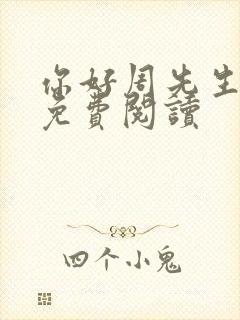 你好周先生
免費閱讀
四个小鬼